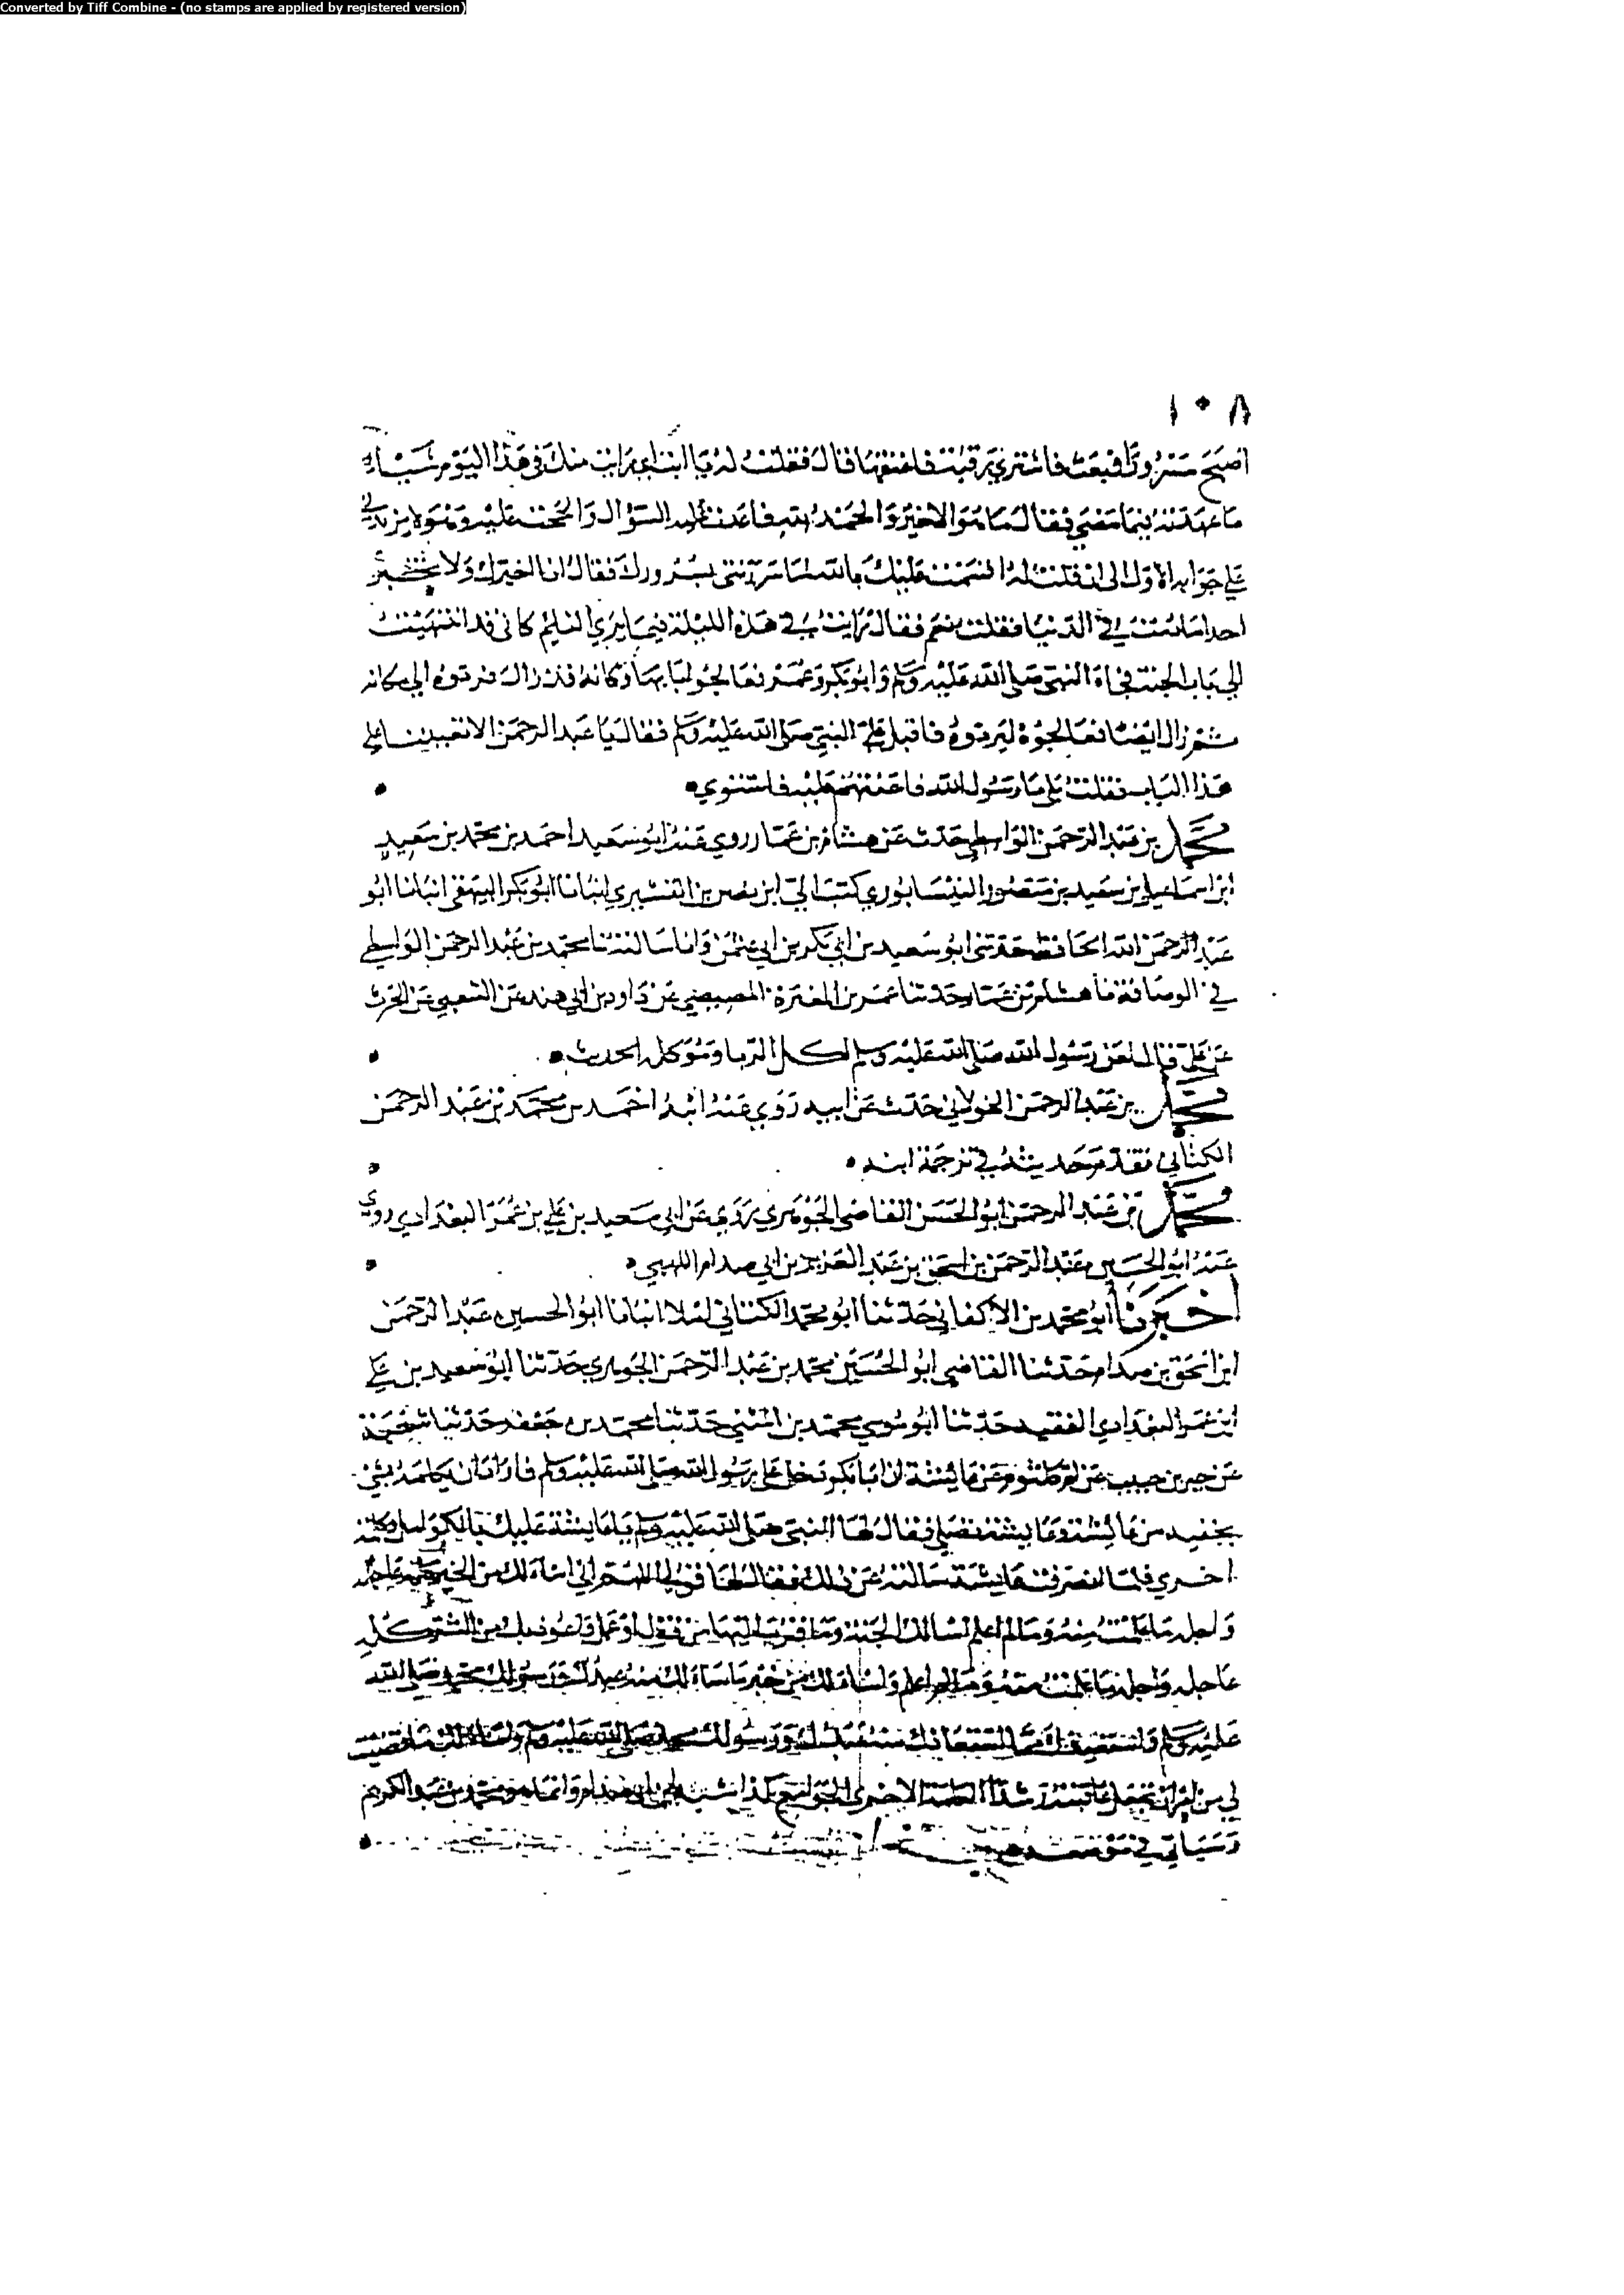 Converted by Tiff Combine - (no stamps are applied by registered version)
١٠٨
اصبح مسرورا فبعث فاشتري رقبت فاعتقها قال فقلت له يا ابت اني رايت منك في هذا اليوم شيئا
ما عهدته فيما مضي فقال ما هو الا خير والحمد لله فاعدت عليه السؤال والححت عليه وهو لا يزيدني
علي جوابه الاول الى ان قلت له اقسمت عليك بالله لما سررتني بسرورك فقال انا اخبرك ولا تخبر
احدا ما دمت في الدنيا فقلت نعم فقال رايت في هذه الليلة فيما يري النايم كاني قد انتهيت
الي باب الجنة فاذا النبي صلى الله عليه وسلم وابو بكر وعمر يعالجوا بابها وكانه قد زال فردوه الي مكانه
ثم زال ايضا فعالجوه ليردوه فاقبل علي النبي صلى الله عليه وسلم فقال يا عبد الرحمن الا تعيننا علي
هذا الباب فقلت بلي يا رسول الله فاعنتهم عليه فاستوي
محمد بن عبد الرحمن الواسطي حدث عن هشام بن عمار روي عنه ابو سعيد احمد بن محمد بن سعيد
ابن اسماعيل بن سعيد بن منصور النيسابوري كتب الي ابو نصر بن القشيري انبانا ابو بكر البيهقي انبانا ابو
عبد الرحمن الله الحافظ حدثني ابو سعيد بن ابي بكر بن ابي عثمن وانا سالته نا محمد بن عبد الرحمن الواسطي
في الرصافة نا هشام بن عمار حدثنا عمر بن المغيرة المصيصي عن داود بن ابي هند عن الشعبي عن الحرث
عن علي قال لعن رسول الله صلى الله عليه وسلم اكل الربا وموكله الحديث
محمد بن عبد الرحمن الخولاني حدث عن ابيه روي عنه ابنه احمد بن محمد بن عبد الرحمن
الكتاني تقدم حديثه في ترجمة ابنه
محمد بن عبد الرحمن ابو الحسن القاضي الجوهري يروي عن ابي سعيد بن علي بن عمر البغدادي روي
عنه ابو الحسين عبد الرحمن بن اسحق بن عبد العزيز بن ابي صدام اللهبي
اخبرنا ابو محمد بن الاكفاني حدثنا ابو محمد الكتاني املا انبانا ابو الحسين عبد الرحمن
ابن اسحق بن صدام حدثنا القاضي ابو الحسين محمد بن عبد الرحمن الجوهري حدثنا ابو سعيد بن علي
ابن عمر البغدادي الفقيه حدثنا ابو موسي محمد بن المثني حدثنا محمد بن جعفر حدثنا شعبة
عن جبر بن حبيب عن ام كلثوم عن عايشة ان ابا بكر دخل علي رسول الله صلى الله عليه وسلم فاراد ان يكلمه بشي
يخفيه من عايشة وعايشة تصلي فقال لها النبي صلى الله عليه وسلم يا عايشة عليك بالكوامل وكلمة
اخري فلما انصرفت عايشة سالته عن ذلك فقال لها قولي اللهم اني اسالك من الخير كله عاجله
واجله ما علمت منه وما لم اعلم اسالك الجنة وما قرب اليها من قول او عمل واعوذ بك من الشر كله
عاجله واجله ما علمت منه وما لم اعلم واسالك من خير ما سالك منه عبدك ورسولك محمد صلى الله
عليه وسلم واستعيذك مما استعاذك منه عبدك ورسولك محمد صلى الله عليه وسلم واسالك ما قضيت
لي من امر ان تجعل عاقبته رشدا محمد بن عبد الكريم
وسياتي في موضعه